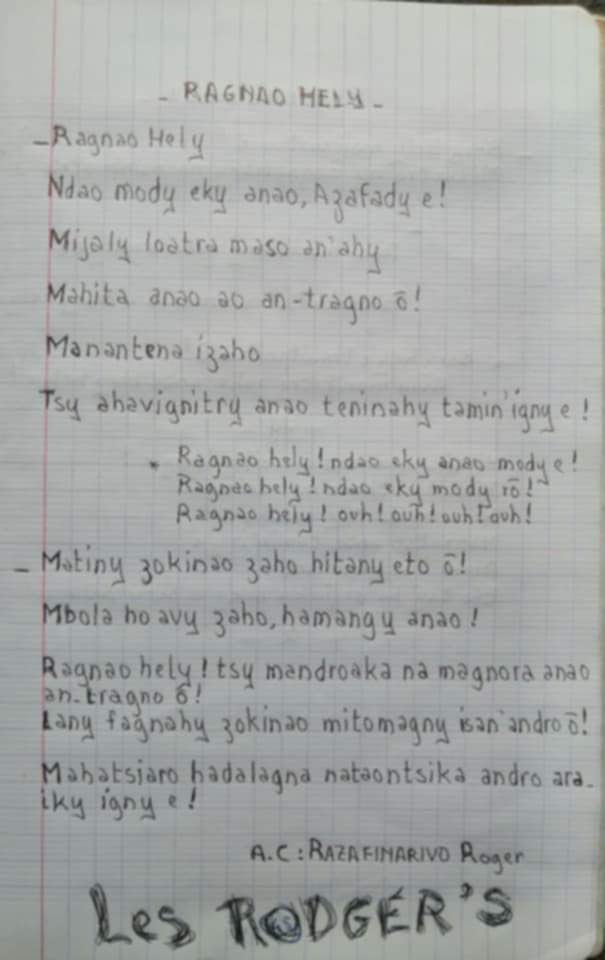 - RAGNAO HELY -
- Ragnao Hely
Ndao mody eky anao, Azafady e!
Mijaly loatra maso an'ahy
Mahita anao ao an-tragno ō!
Manantena izaho
Tsy ahavignitry anao teninahy tamin'igny e!
* Ragnao hely! ndao eky anao mody e!
Ragnao hely! ndao eky mody rō!
Ragnao hely! ouh! ouh! ouh! ouh!
- Matiny zokinao zaho hitany eto ō!
Mbola ho avy zaho, hamangy anao!
Ragnao hely! tsy mandroaka na magnora anao
an-tragno ō!
Lany fagnahy zokinao mitomagny isan'andro ō!
Mahatsiaro hadalagna nataontsika andro ara-
iky igny e!
A.C: RAZAFINARIVO Roger
Les RODGER'S